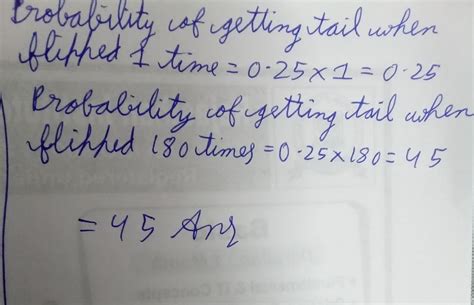 Probability of getting tail when
flipped 1 time = 0.25 x 1 = 0.25
Probability of getting tail when
flipped 180 times = 0.25 x 180 = 45
= 45 Ans